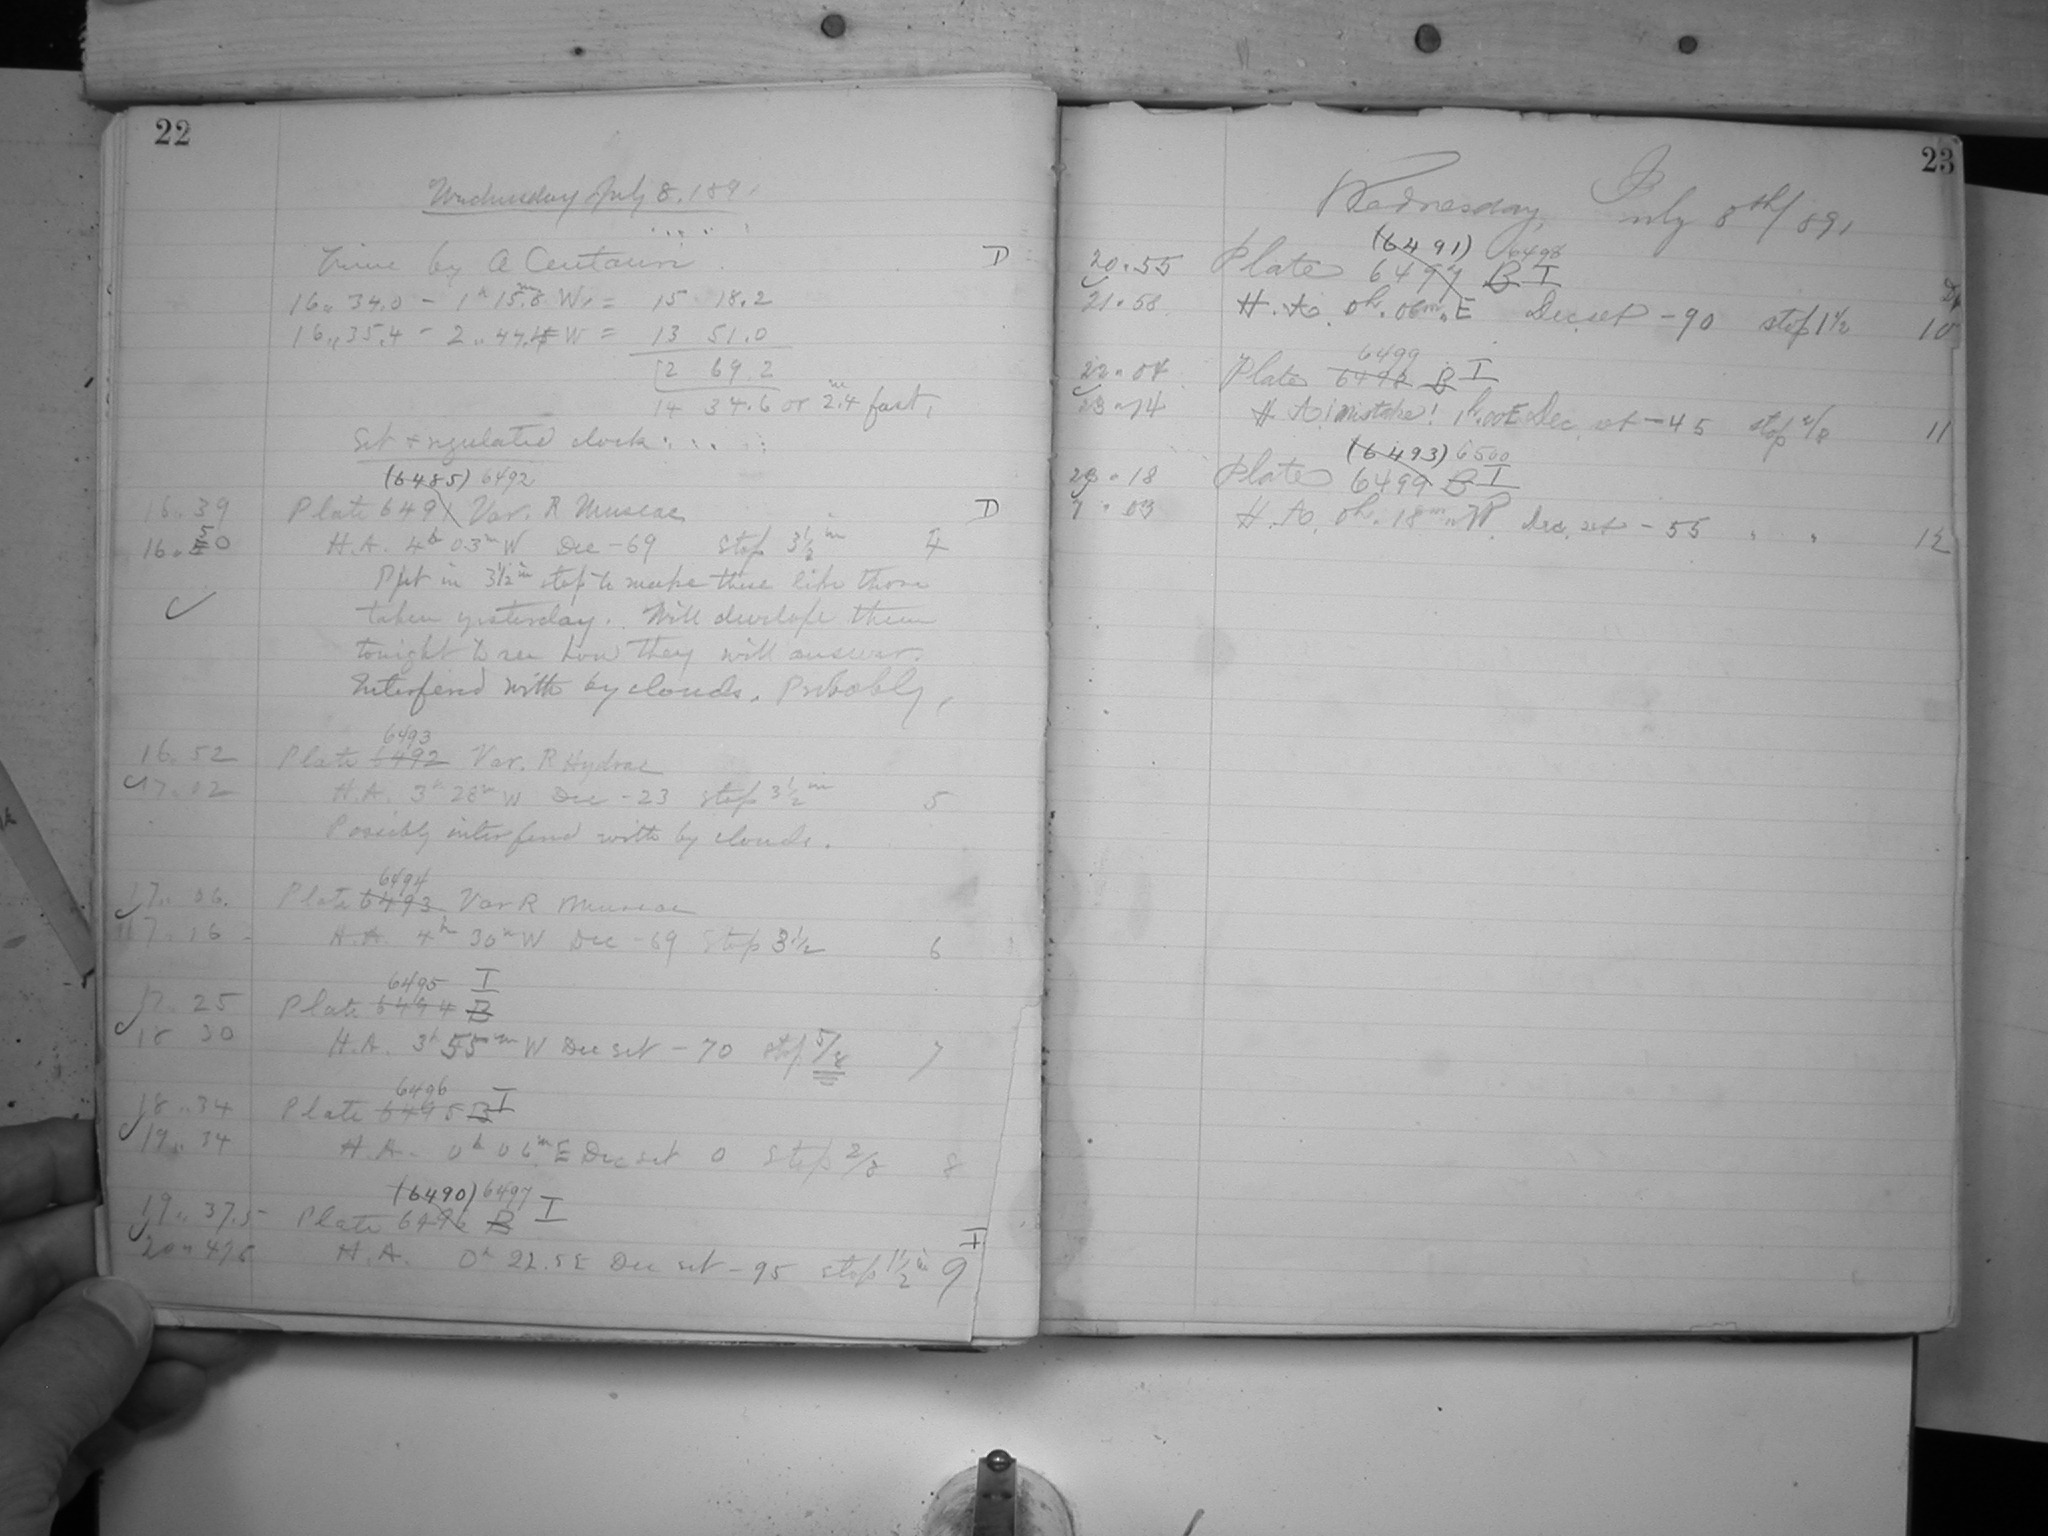 22
Wednesday July 8. 1891
Time by α Centauri D
16,, 34.0 - 1h 15.8m W. = 15 18.2
16,, 35.4 - 2,, 44.4 W = 13 51.0
2 69.2
14 34.6 or 2.4m fast,
Set & regulated clock
(6485) 6492
16,, 39 Plate 6491 Var. R Muscae D
16,, 50 H.A. 4h 03m W Dec -69 Stop 3 1/2 in 4
Put in 3 1/2 in stop to make these like those
taken yesterday. Will develope them
tonight to see how they will answer.
Interfered with by clouds. Probably,
6493
16,, 52 Plate 6492 Var. R Hydrae
17,, 02 H.A. 3h 28m W Dec -23 stop 3 1/2 in 5
Possibly interfered with by clouds.
6494
17,, 06. Plate 6493 Var R Muscae
17,, 16 H.A. 4h 30m W Dec -69 Stop 3 1/2 6
6495 I
17,, 25 Plate 6494 B
18 30 H.A. 3h 55m W Dec set -70 stop 5/8 7
6496
18,, 34 Plate 6495 B I
19,, 34 H.A. 0h 06m E Dec set 0 Stop 2/8 8
(6490) 6497
19,, 37.5 Plate 6496 B I
20,, 47.5 H.A. 0h 22.5 E Dec set -95 stop 1 1/2 in 9 I
23
Wednesday, July 8th/891
(6491) 6498
20 " 55 Plate 6497 B I
21 " 58 H.A. 0h. 06m. E Dec set -90 stop 1 1/2 10
6499
22 " 04 Plate 6498 B I
23 " 14 H A! mistake! 1h.00 E Dec. set -45 stop 2/8 11
(6493) 6500
23 " 18 Plate 6499 B I
H.A. 0h. 18m. W. Dec. set -55 " " 12